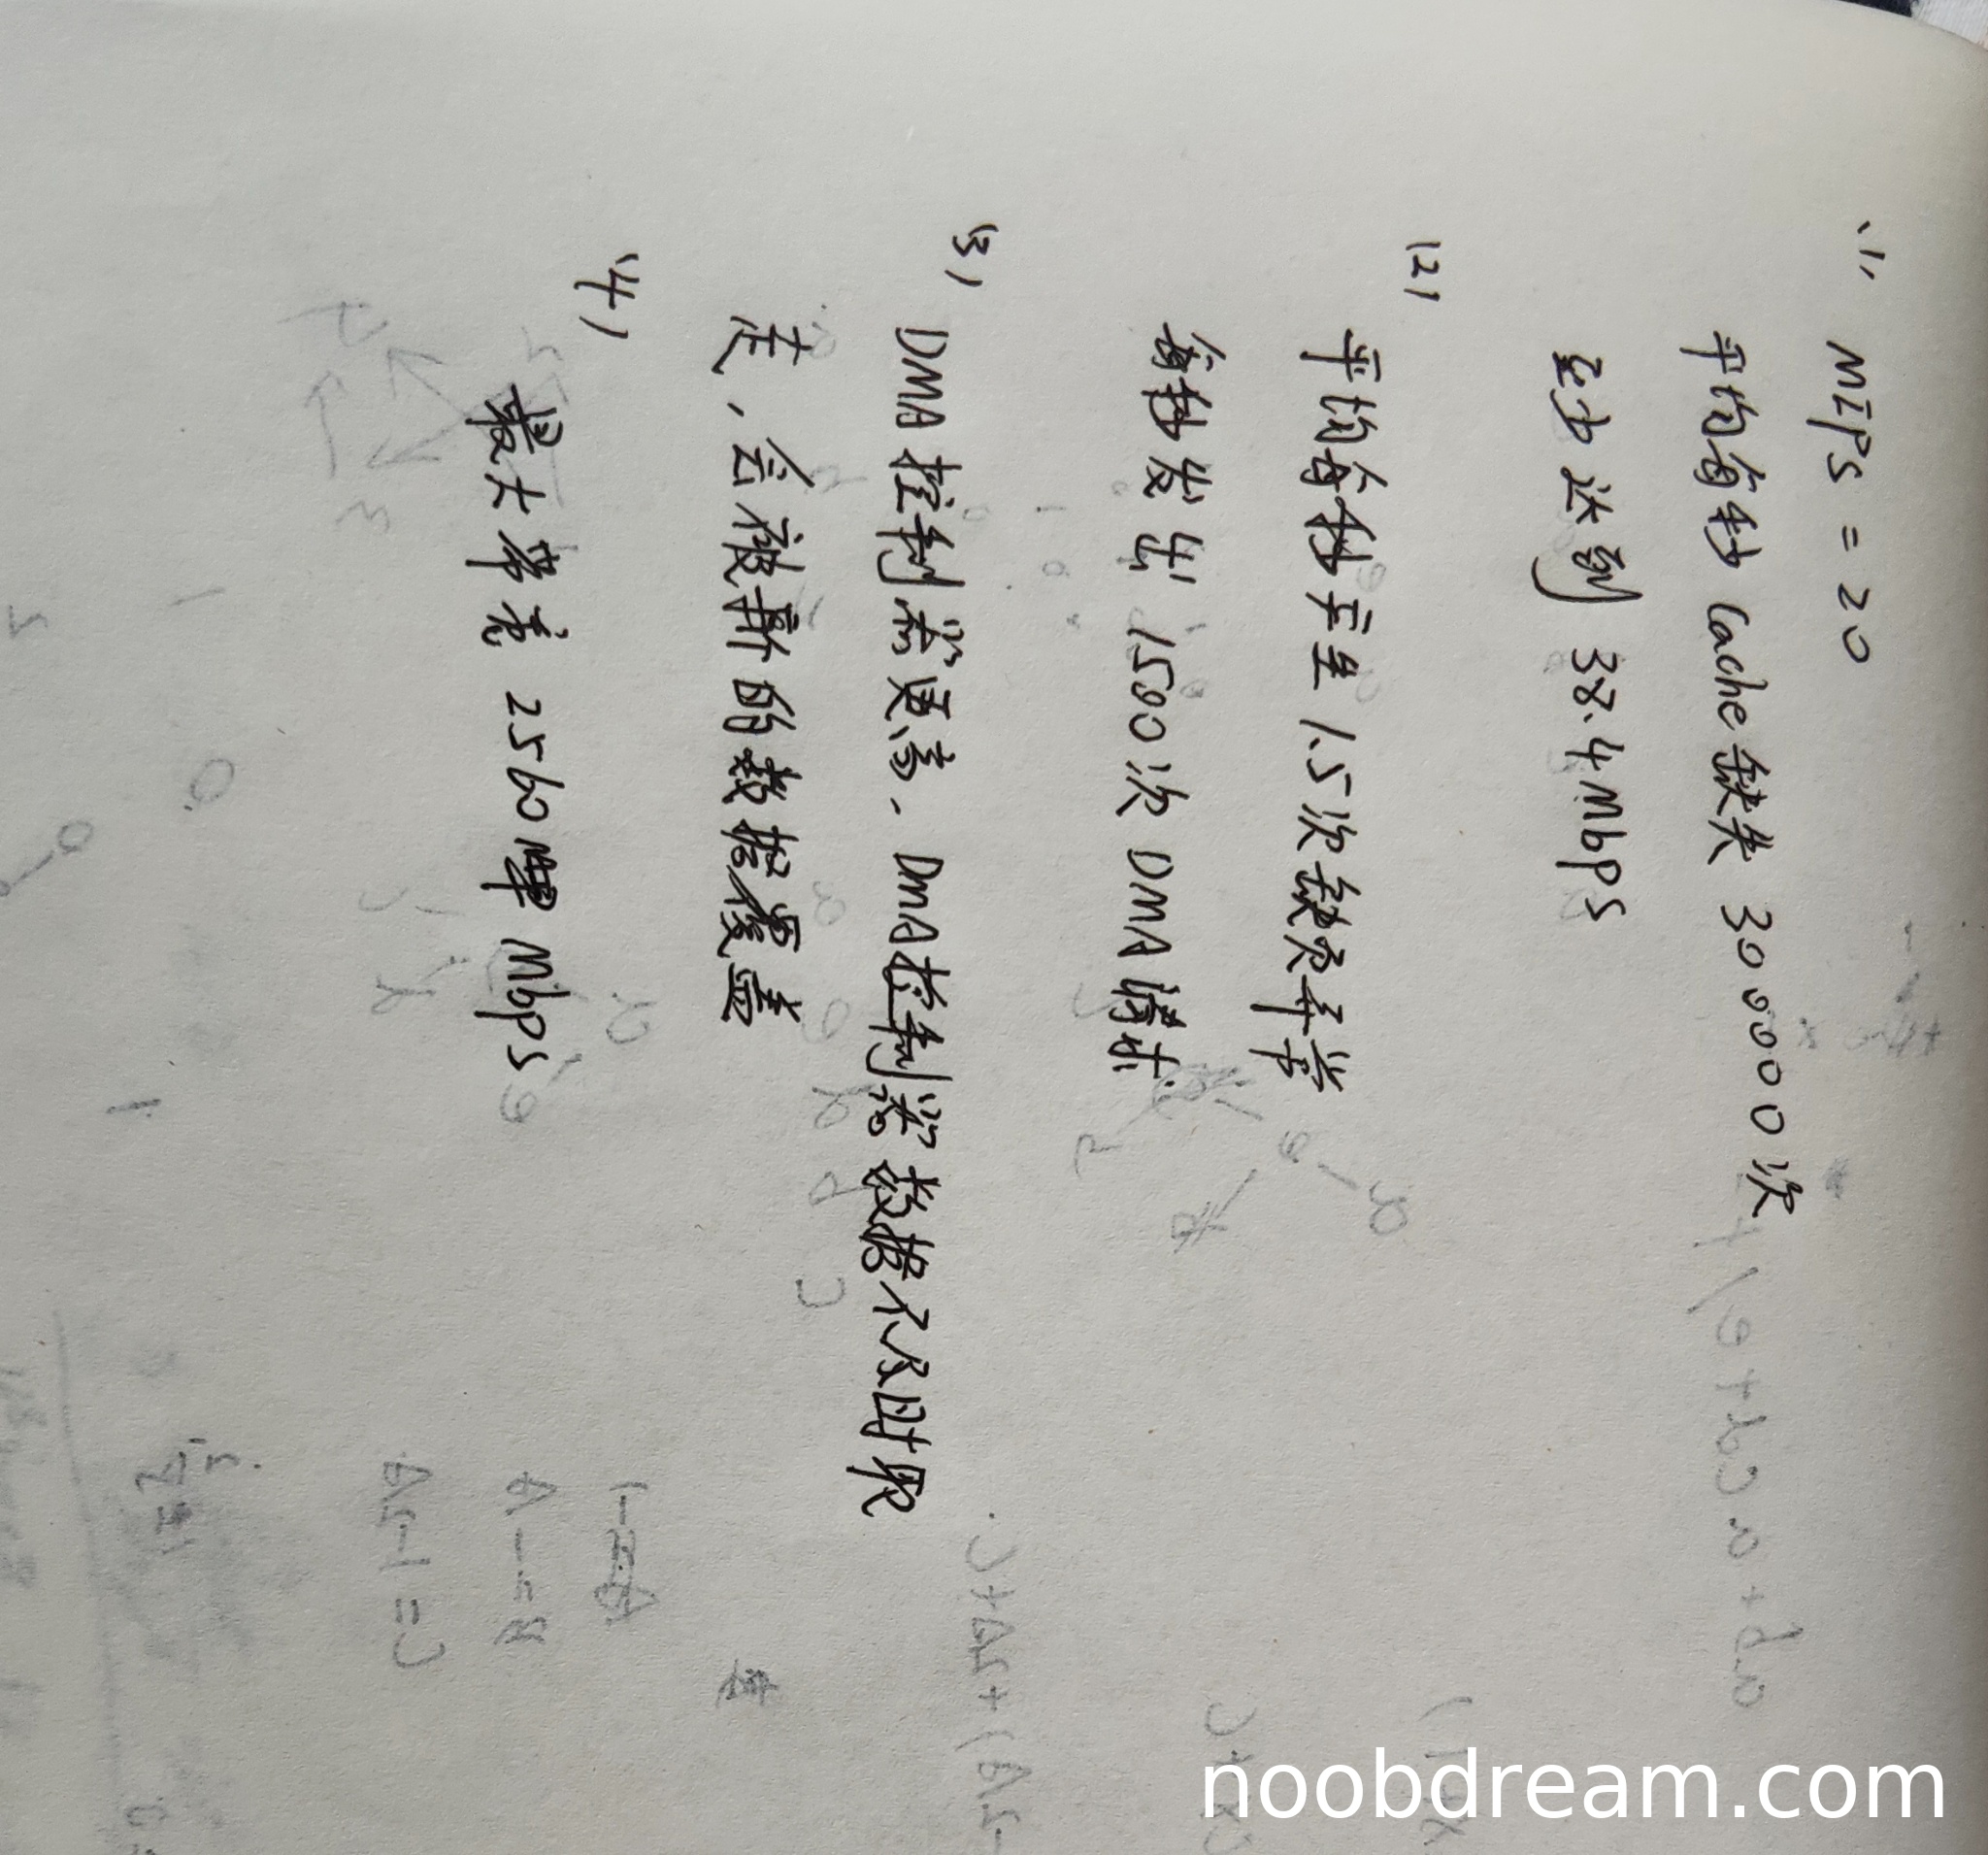 (1) MIPS = 20
平均每秒 Cache缺失 300000次
至少达到 38.4Mbps
(2)
平均每秒产生 1.5次缺页异常
每秒发出 1500次 DMA请求.
(3)
DMA控制器更高. DMA控制器数据不及时取
走,会被新的数据覆盖
(4)
最大带宽 2560 Mbps
noobdream.com